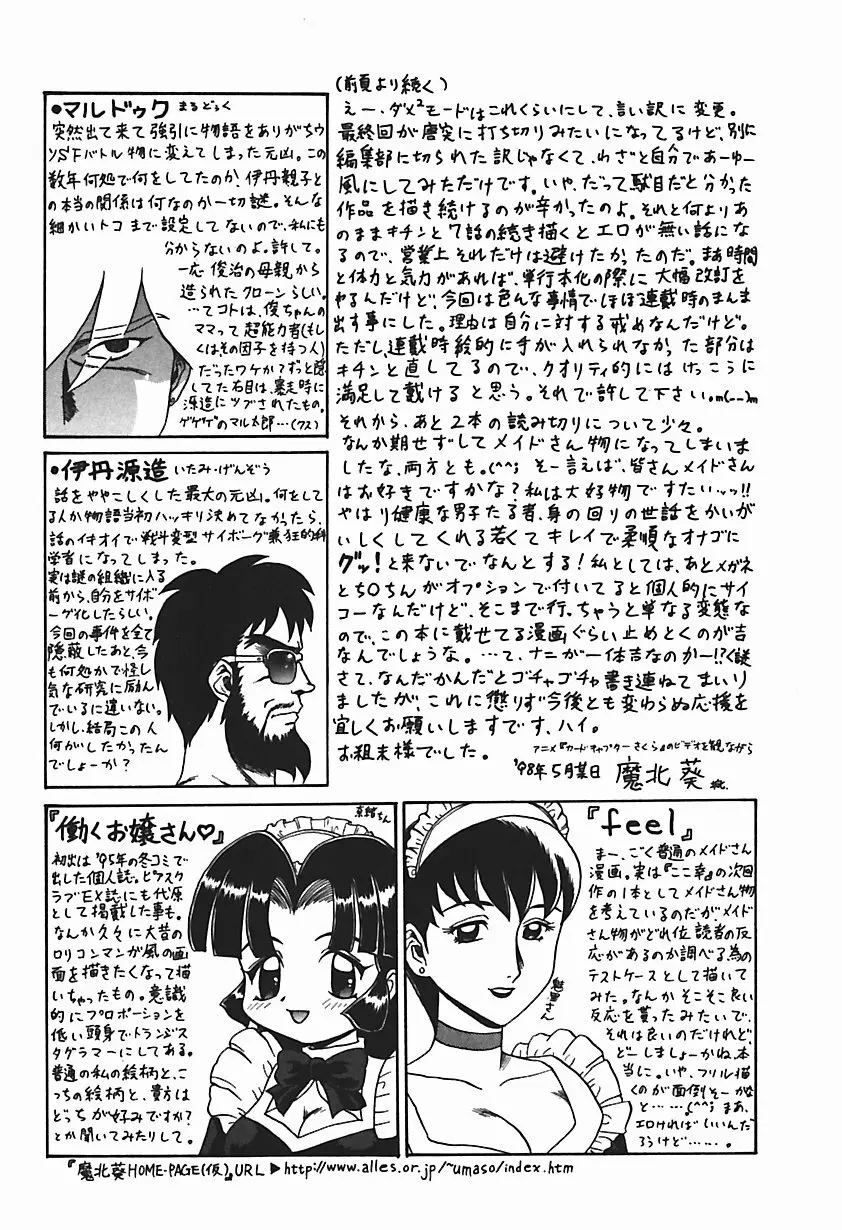 (前頁より続く)
えー、ダメ²モードはこれくらいにして、言い訳に変更。
最終回が唐突に打ち切りみたいになってるけど、別に
編集部に切られた訳じゃなくて、わざと自分であーゆー
風にしてみただけです。いや、だって駄目だと分かった
作品を描き続けるのが辛かったのよ。それと何よりあ
のままキチンと7話の続き描くとエロが無い話にな
るので、営業上それだけは避けたかったのだ。まあ時間
と体力と気力があれば、単行本化の際に大幅改訂を
やるんだけど、今回は色んな事情でほぼ連載時のまんま
出す事にした。理由は自分に対する戒めなんだけど。
ただし、連載時絵的に手が入れられなかった部分は
キチンと直してるので、クオリティ的にはけっこうに
満足して戴けると思う。それで許して下さい。m(__)m
それから、あと2本の読み切りについて少々。
なんか期せずしてメイドさん物になってしまいま
したな、両方とも。(^^; そー言えば、皆さんメイドさん
はお好きですかな?私は大好物ですたいッッ!!
やはり健康な男子たる者、身の回りの世話をかいが
いしくしてくれる若くてキレイで柔順なオナゴに
グッ!と来ないでなんとする!私としては、あとメガネ
とち○ちんがオプションで付いてると個人的にサイ
コーなんだけど、そこまで行っちゃうと単なる変態な
ので、この本に載せてる漫画ぐらい止めとくのが吉
なんでしょうな。…て、ナニが一体吉なのかー!?
さて、なんだかんだとゴチャゴチャ書き連ねてまいり
ましたが、これに懲りず今後とも変わらぬ応援を
宜しくお願いしますです、ハイ。
お粗末様でした。
アニメ『カードキャプターさくら』のビデオを観ながら
'98年5月某日 魔北葵
●マルドゥク まるどぅく
突然出て来て強引に物語をありがちウ
ソSFバトル物に変えてしまった元凶。この
数年何処で何をしてたのか、伊丹親子と
の本当の関係は何なのか一切謎。そんな
細かいトコまで設定してないので、私にも
分からないのよ。許して。
一応俊治の母親から
造られたクローンらしい。
…てコトは、俊ちゃんの
ママって超能力者(もし
くはその因子を持つ人)
だったワケか?ずっと隠
してた右目は、暴走時に
源造にツブされたもの。
ゲゲゲのマル太郎…(クス)
●伊丹源造 いたみ・げんぞう
話をややこしくした最大の元凶。何をして
る人か物語当初ハッキリ決めてなかったら、
話のイキオイで戦斗変型サイボーグ兼狂的科
学者になってしまった。
実は謎の組織に入る
前から、自分をサイボ
ーグ化したらしい。
今回の事件を全て
隠蔽したあと、今
も何処かで怪し
気な研究に励ん
でいるに違いない。
しかし、結局この人
何がしたかったん
でしょーか?
『働くお嬢さん♡』
初出は'95年の冬コミで
出した個人誌。ピアスク
ラブEX誌にも代原
として掲載した事も。
なんか久々に大昔の
ロリコンマンガ風の画
面を描きたくなって描
いちゃったもの。意識
的にプロポーションを
低い頭身でトランジス
タグラマーにしてある。
普通の私の絵柄と、こ
っちの絵柄と、貴方は
どっちが好みですか?
とか聞いてみたりして。
『feel』
まー、ごく普通のメイドさん
漫画。実は『ここ幸』の次回
作の1本としてメイドさん物
を考えているのだが、メイド
さん物がどれ位読者の反
応があるのか調べる為の
テストケースとして描いて
みた。なんかそこそこ良い
反応を貰ったみたいで、
それは良いのだけれど、
どーしましょーかね、本
当に。いや、フリル描
くのが面倒そーかな
と……(^^; まあ、
エロければいいんだ
ろうけど……。
『魔北葵HOME-PAGE(仮)』URL ▶http://www.alles.or.jp/~umaso/index.htm